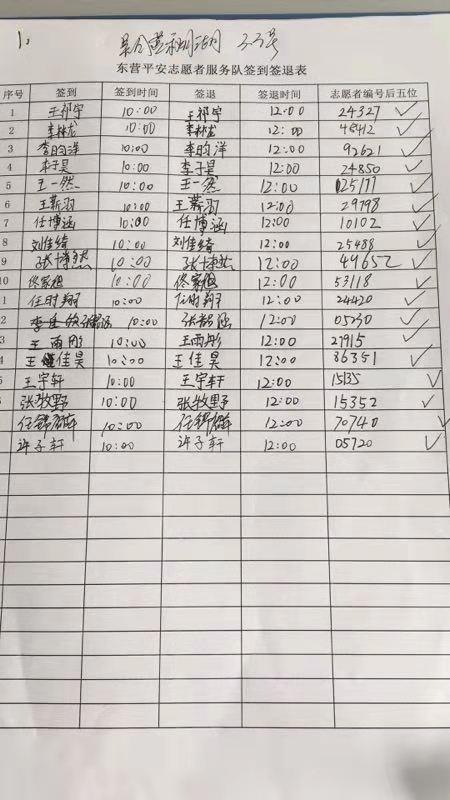 1.
33号
东营平安志愿者服务队签到签退表
序号 签到 签到时间 签退 签退时间 志愿者编号后五位
1 王祁宇 10:00 王祁宇 12:00 24327 ✓
2 李林龙 10:00 李林龙 12:00 48412 ✓
3 李昀洋 10:00 李昀洋 12:00 92621 ✓
4 李子昊 10:00 李子昊 12:00 24850 ✓
5 王一然 10:00 王一然 12:00 02517 ✓
6 王薪羽 10:00 王薪羽 12:00 29798 ✓
7 任博涵 10:00 任博涵 12:00 10102 ✓
8 刘佳绮 10:00 刘佳绮 12:00 25488 ✓
9 张博 10:00 张博 12:00 49652 ✓
10 佟家 10:00 佟家 12:00 53118 ✓
1 任时翔 10:00 任时翔 12:00 24420 ✓
2 10:00 张涵 12:00 05230 ✓
3 王雨彤 10:00 王雨彤 12:00 27915 ✓
4 王佳昊 10:00 王佳昊 12:00 86351 ✓
5 王宇轩 10:00 王宇轩 12:00 15135 ✓
张牧野 10:00 张牧野 12:00 15352 ✓
任 10:00 任 12:00 70740 ✓
8 许子轩 10:00 许子轩 12:00 05720 ✓